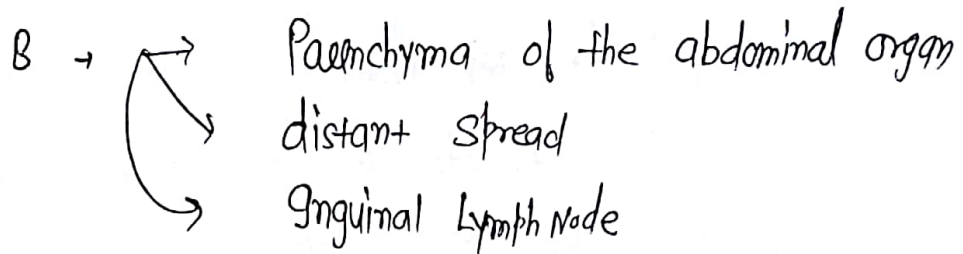 B → → Paenchyma of the abdominal organ
distant spread
Inguinal Lymph Node